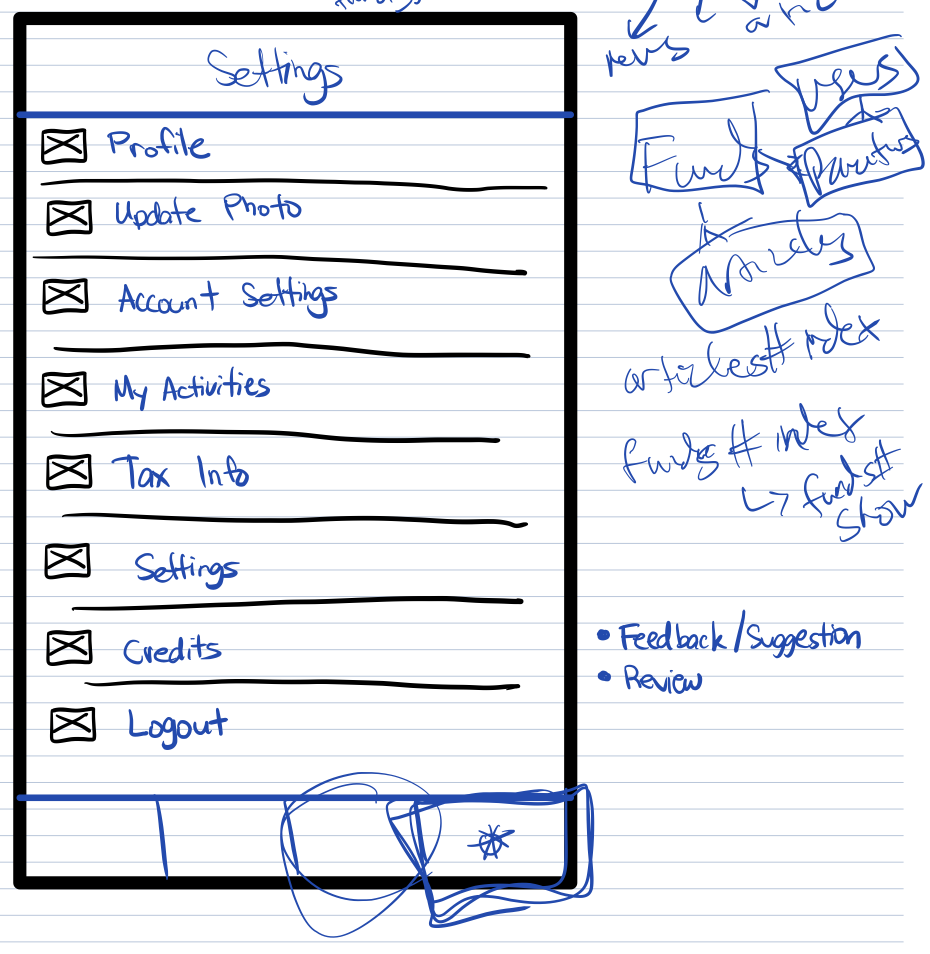 Settings
Profile
Update Photo
Account Settings
My Activities
Tax Info
Settings
Credits
Logout
users
Funds
articles#index
funds#index
↳ funds#
show
• Feedback/Suggestion
• Review